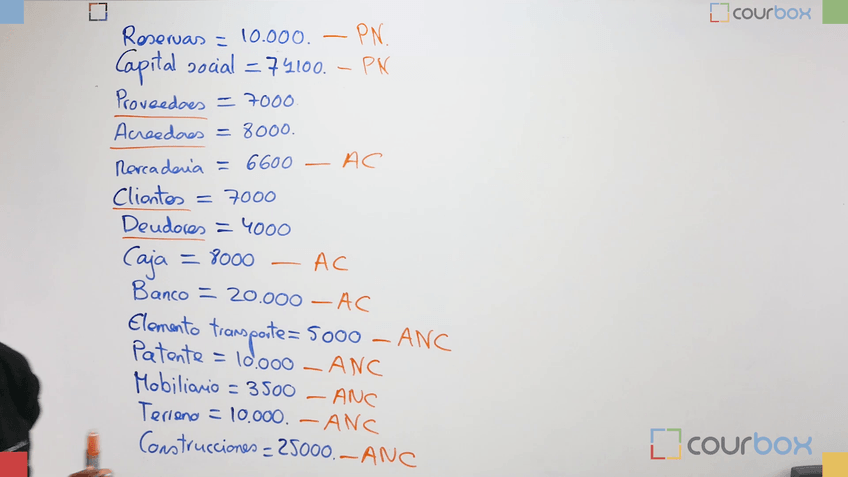 courbox
Reservas = 10.000. — PN.
Capital social = 74100. — PN
Proveedores = 7000
Acreedores = 8000.
Mercaderia = 6600 — AC
Clientes = 7000
Deudores = 4000
Caja = 8000 — AC
Banco = 20.000 — AC
Elemento transporte = 5000 — ANC
Patente = 10.000 — ANC
Mobiliario = 3500 — ANC
Terreno = 10.000. — ANC
Construcciones = 25000. — ANC
courbox